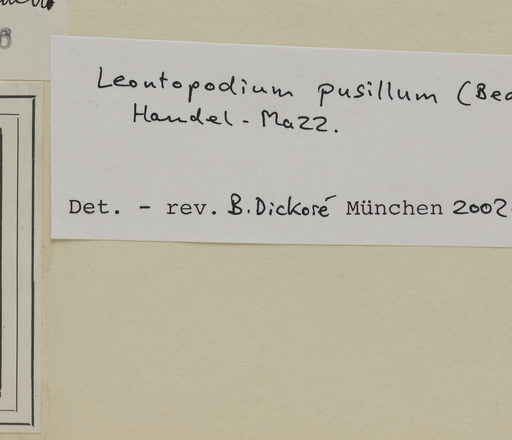 Leontopodium pusillum (Bea
Handel-Mazz.
Det. - rev. B. Dickoré München 2002